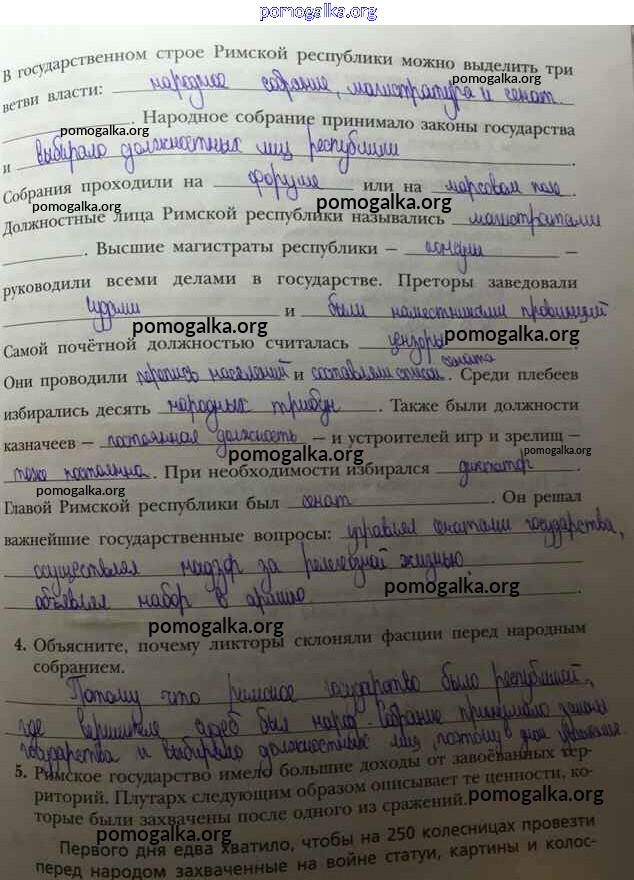 pomogalka.org
В государственном строе Римской республики можно выделить три
ветви власти: народное собрание, магистратура и сенат
pomogalka.org
. Народное собрание принимало законы государства
и выбирало должностных лиц республики .
pomogalka.org
Собрания проходили на форуме или на марсовом поле.
pomogalka.org pomogalka.org
Должностные лица Римской республики назывались магистратами
pomogalka.org
. Высшие магистраты республики – консулы –
руководили всеми делами в государстве. Преторы заведовали
судами и были наместниками провинций
pomogalka.org
Самой почётной должностью считалась цензоры .
pomogalka.org
сената
Они проводили перепись населения и составляли список . Среди плебеев
избирались десять народных трибун . Также были должности
pomogalka.org
казначеев – постоянная должность – и устроителей игр и зрелищ –
pomogalka.org pomogalka.org
тоже постоянна . При необходимости избирался диктатор .
pomogalka.org
Главой Римской республики был сенат . Он решал
важнейшие государственные вопросы: управлял государства,
осуществлял надзор за религиозной жизнью,
объявлял набор в армию
pomogalka.org
pomogalka.org
4. Объясните, почему ликторы склоняли фасции перед народным
собранием.
Потому что римское государство было республикой,
где был народ. Собрание принимало законы
государства и выбирало должностных лиц, поэтому
5. Римское государство имело большие доходы от завоёванных тер-
риторий. Плутарх следующим образом описывает те ценности, ко-
торые были захвачены после одного из сражений.
pomogalka.org
pomogalka.org
Первого дня едва хватило, чтобы на 250 колесницах провезти
перед народом захваченные на войне статуи, картины и колос-
pomogalka.org